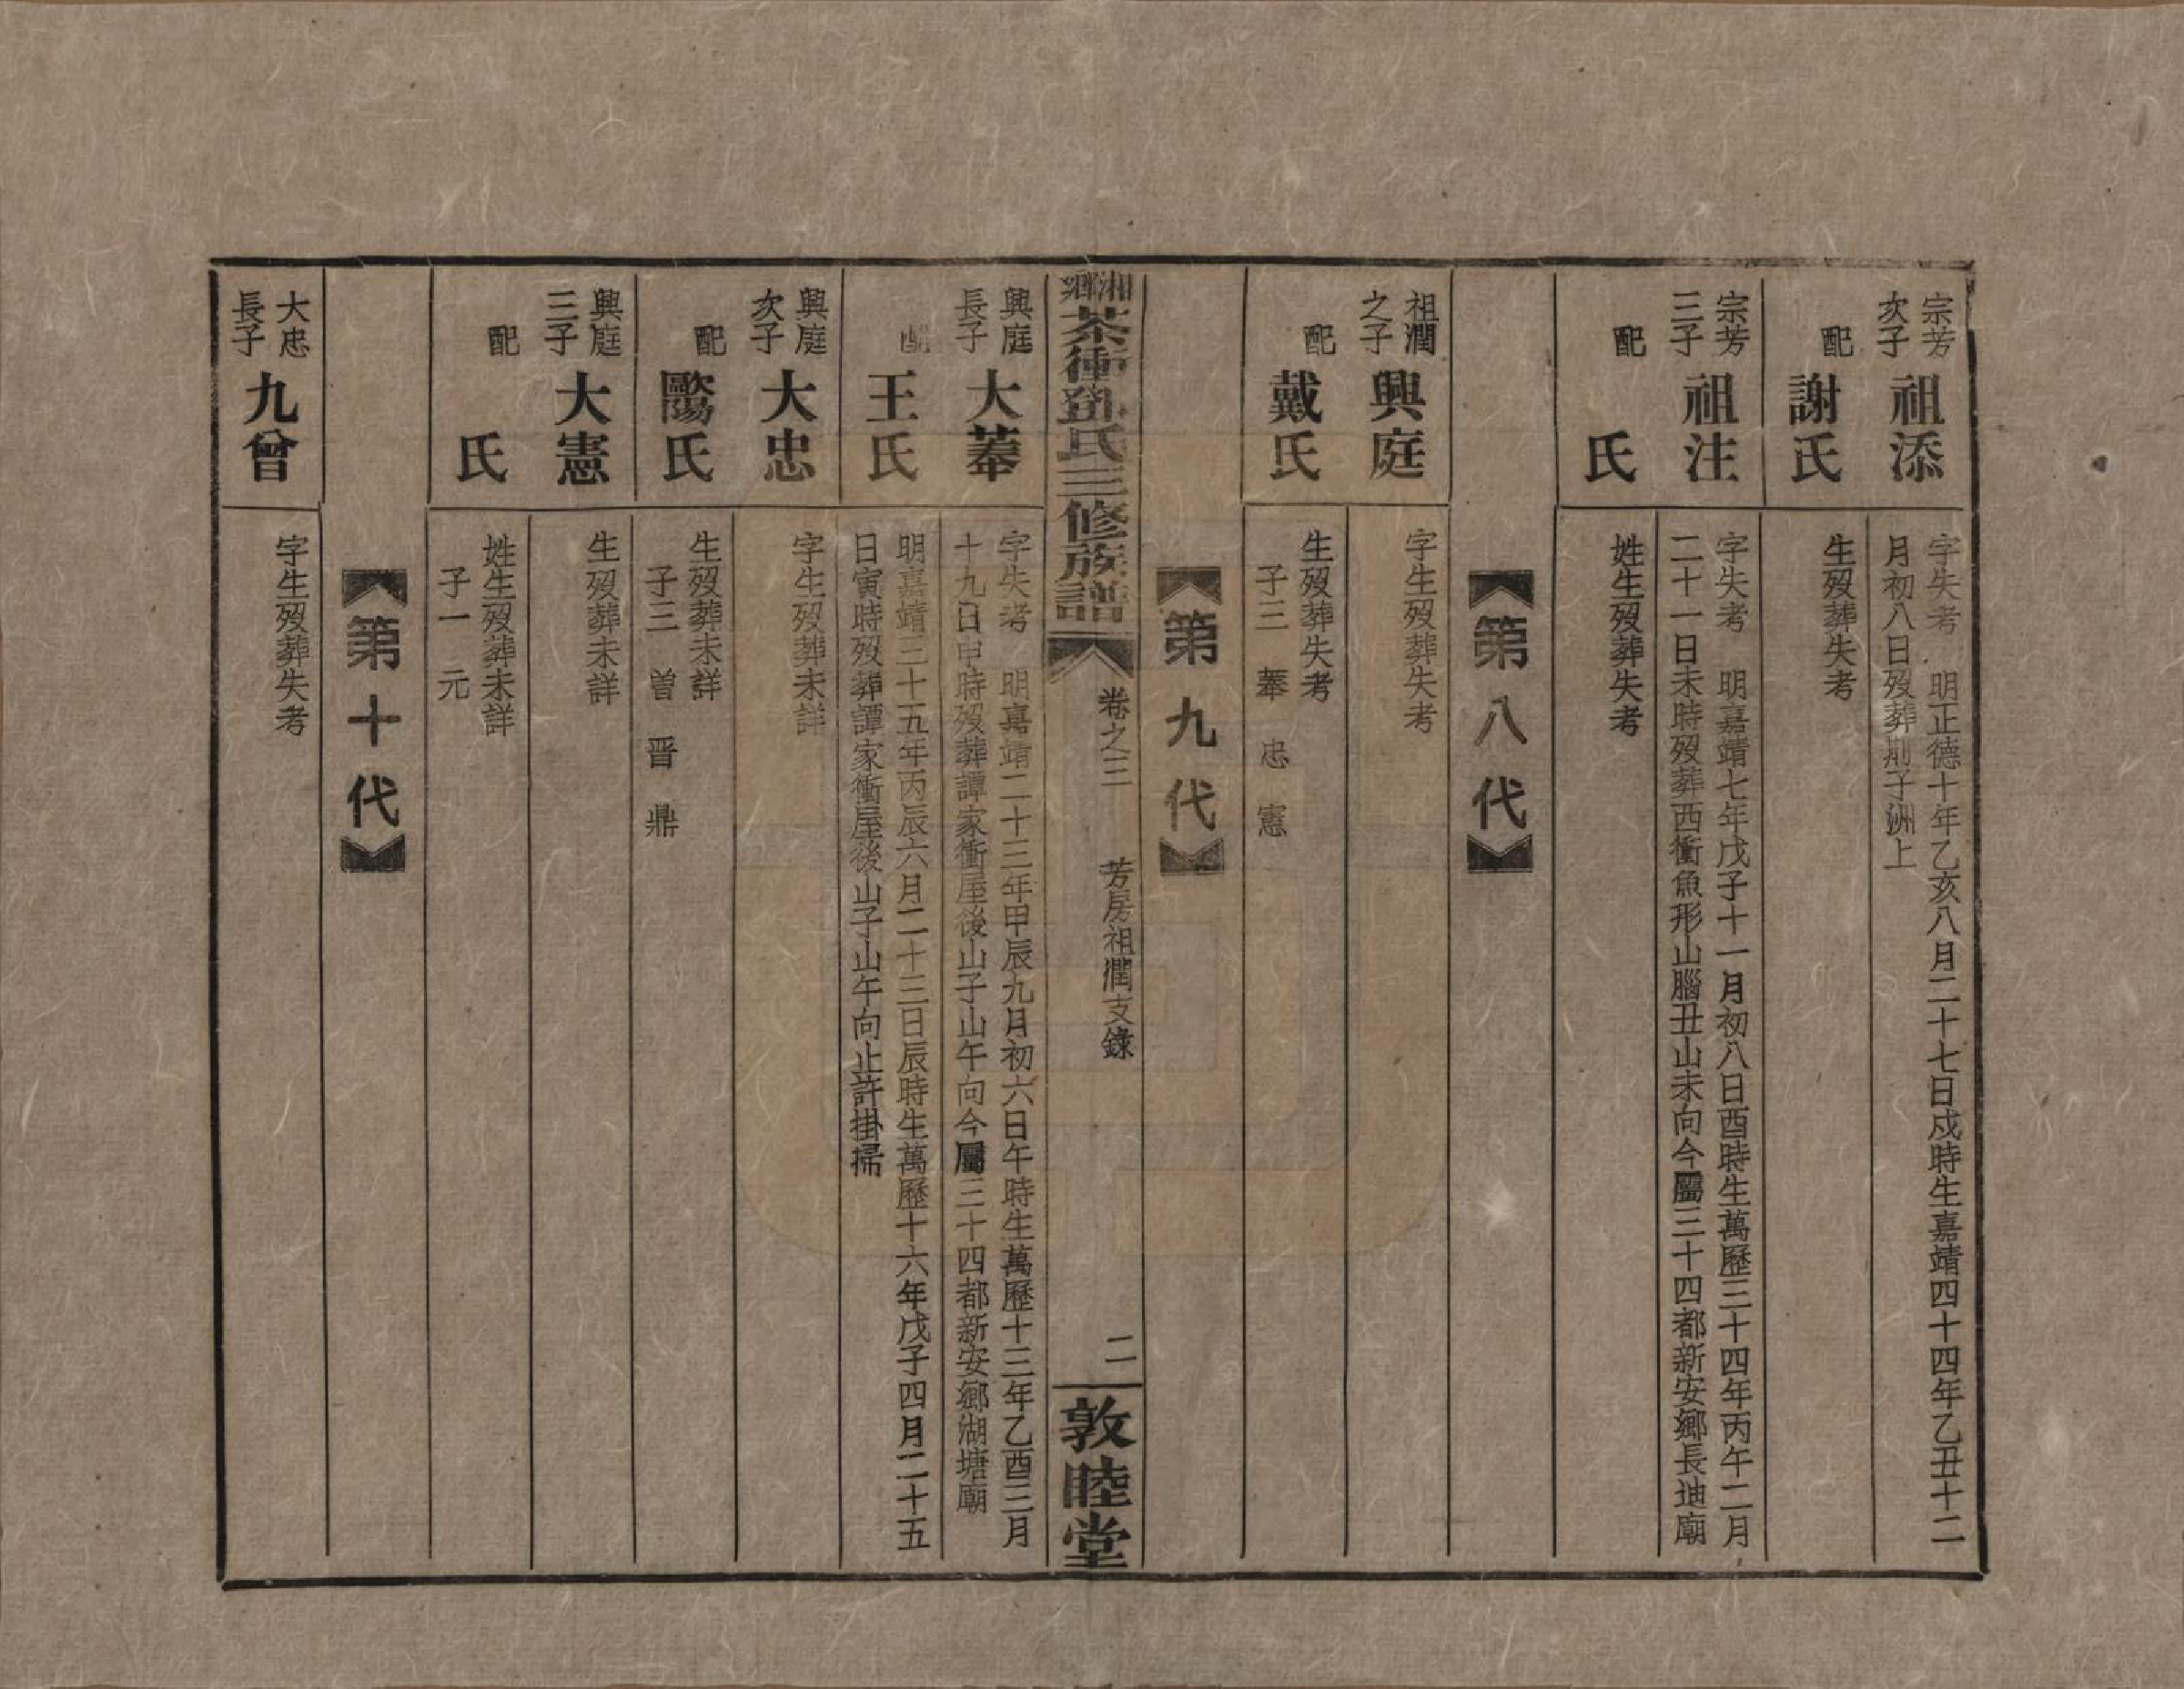 宗芳
次子
祖添
字失考　明正德十年乙亥八月二十七日戍時生嘉靖四十四年乙丑十二
月初八日歿葬荊子洲上
配
謝氏
生歿葬失考
宗芳
三子
祖注
字失考　明嘉靖七年戊子十一月初八日酉時生萬歷三十四年丙午二月
二十一日未時歿葬西衝魚形山腦丑山未向今屬三十四都新安鄉長迪廟
配
氏
姓生歿葬失考
第八代
祖潤
之子
興庭
字生歿葬失考
配
戴氏
生歿葬失考
子三　菶　忠　憲
第九代
湘鄉
茶衝鄧氏三修族譜
卷之三　芳房祖潤支錄
二
敦睦堂
興庭
長子
大菶
字失考　明嘉靖二十三年甲辰九月初六日午時生萬歷十三年乙酉三月
十九日申時歿葬譚家衝屋後山子山午向今屬三十四都新安鄉湖塘廟
配
王氏
明嘉靖三十五年丙辰六月二十三日辰時生萬歷十六年戊子四月二十五
日寅時歿葬譚家衝屋後山子山午向止許掛掃
興庭
次子
大忠
字生歿葬未詳
配
歐陽氏
生歿葬未詳
子三　曾　晋　鼎
興庭
三子
大憲
生歿葬未詳
配
氏
姓生歿葬未詳
子一　元
第十代
大忠
長子
九曾
字生歿葬失考